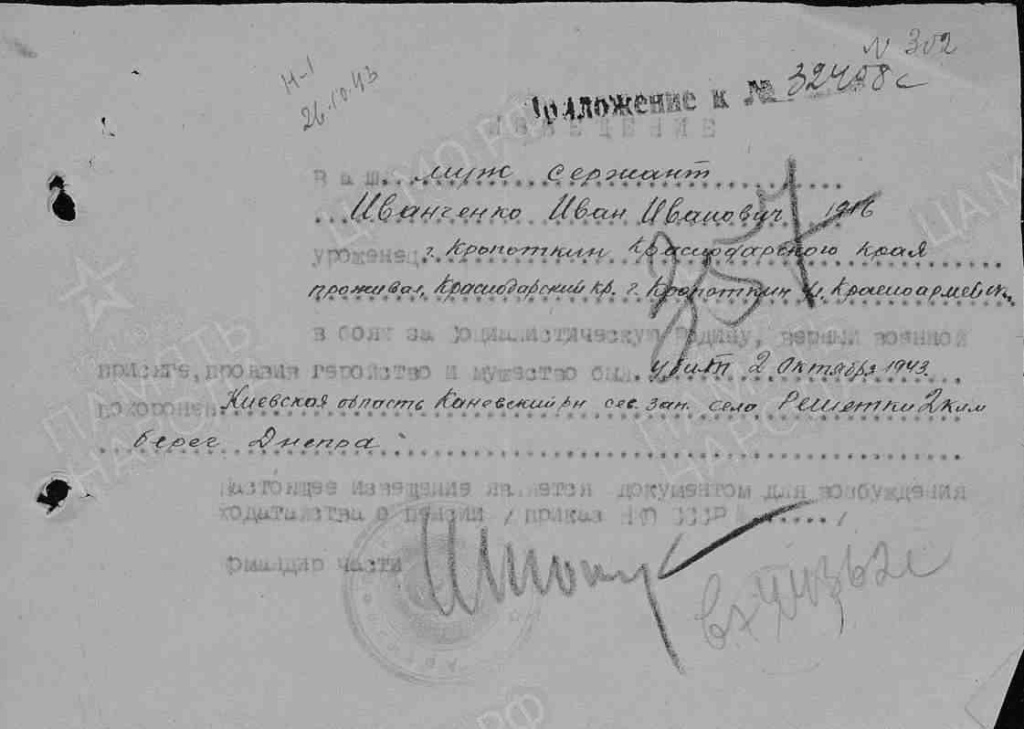 N 302
Н-1
26.10.43
Приложение к № 32408с
ИЗВЕЩЕНИЕ
Ваш муж сержант
Иванченко Иван Иванович 1916
уроженец г. Кропоткин Краснодарского края
проживал, Краснодарский кр. г. Кропоткин
в боях за социалистическую родину, верный военной
присяге, проявив геройство и мужество был убит 2 Октября 1943
похоронен Киевская область Каневский рн сев. зап. село Решетки 2 клм
берег Днепра
настоящее извещение является документом для возбуждения
ходатайства о пенсии /приказ НКО СССР № /
Командир части